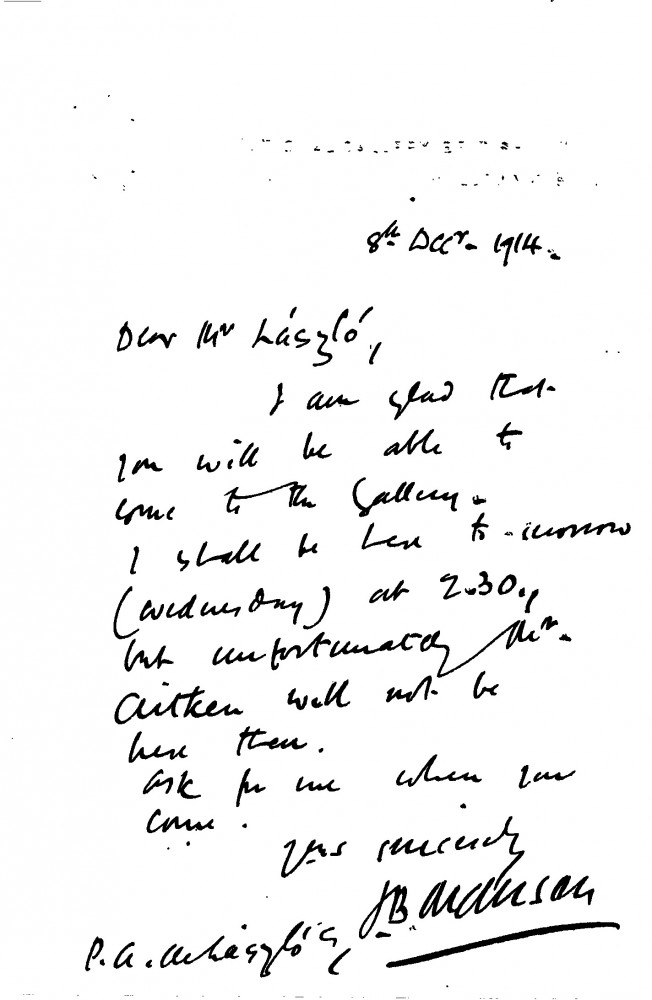 8th Decr. 1914.
Dear Mr László,
I am glad that
you will be able to
come to the Gallery.
I shall be here to-morrow
(Wednesday) at 2.30.,
but unfortunately Mr.
Aitken will not be
here then.
Ask for me when you
come.
Yours sincerely
J.B.
P.A. de László